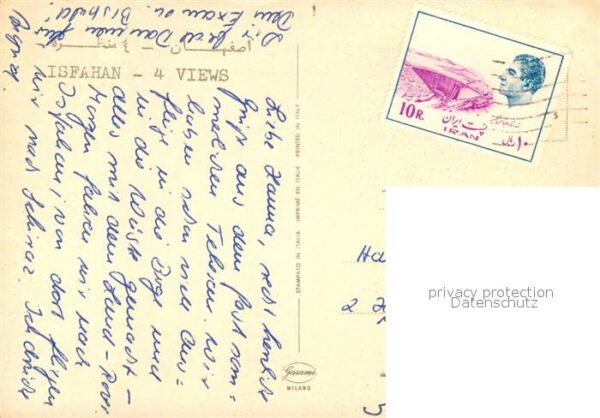 اصفهان - ٤ منظره
ISFAHAN - 4 VIEWS
Liebe Hanna, recht herzliche
Grüße aus dem fast som=
merlichen Teheran. Wir
haben schon viele Aus=
flüge in die Berge und
in die Wüste gemacht -
alles mit dem Land-Rover
Morgen fahren wir nach
Isfahan, von dort fliegen
wir nach Schiraz. Ich drücke
Dir die Daumen für
Dein Examen. Bis bald!
STAMPATO IN ITALIA IMPRIMÉ EN ITALIE PRINTED IN ITALY
Garami
MILANO
10R.
پست ایران
IRAN
۱۰ ریال
Ha
2
5
privacy protection
Datenschutz